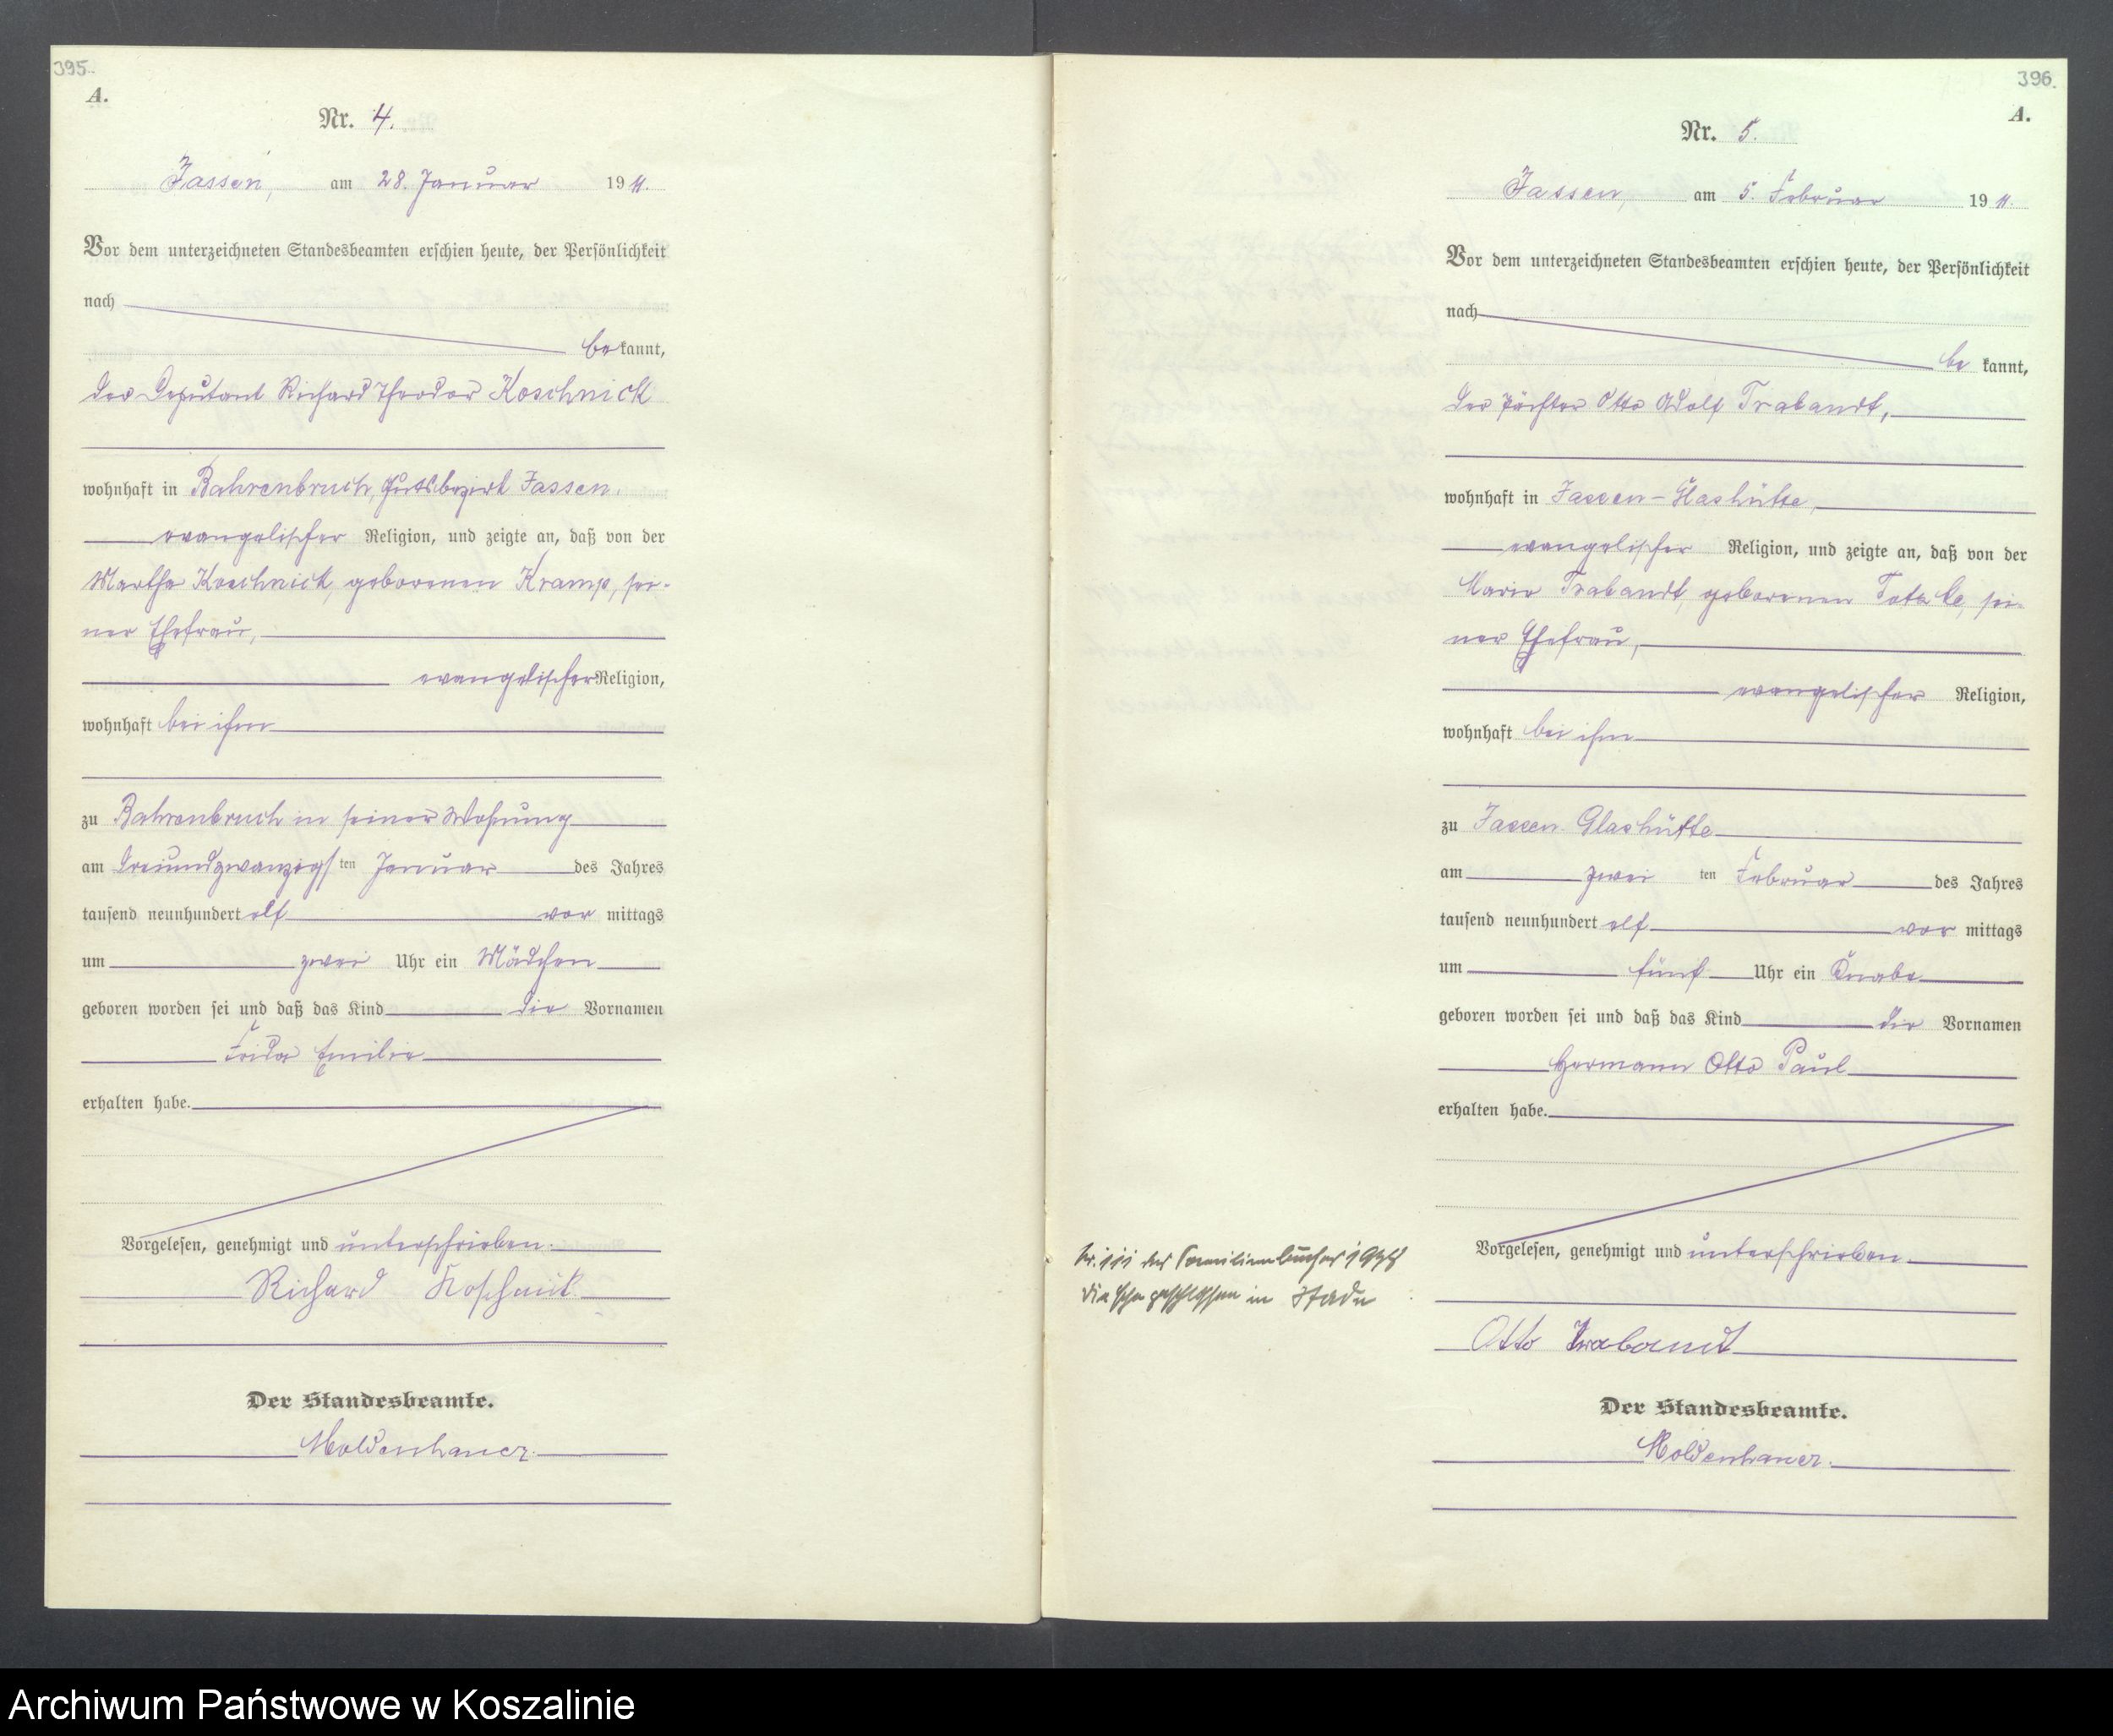 395.
A.
Nr. 4.
Jassen, am 28. Januar 1911.
Vor dem unterzeichneten Standesbeamten erschien heute, der Persönlichkeit
nach
bekannt,
der Deputant Richard Theodor Koschnick
wohnhaft in Bahrenbruch, Gutsbezirk Jassen,
evangelischer Religion, und zeigte an, daß von der
Martha Koschnick, geborenen Kramp, sei-
ner Ehefrau,
evangelischer Religion,
wohnhaft bei ihm
zu Bahrenbruch in seiner Wohnung
am dreiundzwanzigsten Januar des Jahres
tausend neunhundert elf vor mittags
um zwei Uhr ein Mädchen
geboren worden sei und daß das Kind die Vornamen
Frida Emilie
erhalten habe.
Vorgelesen, genehmigt und unterschrieben.
Richard Koschnik
Der Standesbeamte.
Moldenhauer.
396.
A.
Nr. 5.
Jassen, am 5. Februar 1911.
Vor dem unterzeichneten Standesbeamten erschien heute, der Persönlichkeit
nach
be kannt,
der Pächter Otto Adolf Trabandt,
wohnhaft in Jassen-Glashütte,
evangelischer Religion, und zeigte an, daß von der
Marie Trabandt, geborenen sei-
ner Ehefrau,
evangelischer Religion,
wohnhaft bei ihm
zu Jassen-Glashütte
am zwei ten Februar des Jahres
tausend neunhundert elf vor mittags
um fünf Uhr ein Knabe
geboren worden sei und daß das Kind die Vornamen
Hermann Otto Paul
erhalten habe.
Vorgelesen, genehmigt und unterschrieben.
Otto Trabandt
Der Standesbeamte.
Moldenhauer.
Familienbuches
die Ehe geschlossen in Stade
Archiwum Państwowe w Koszalinie